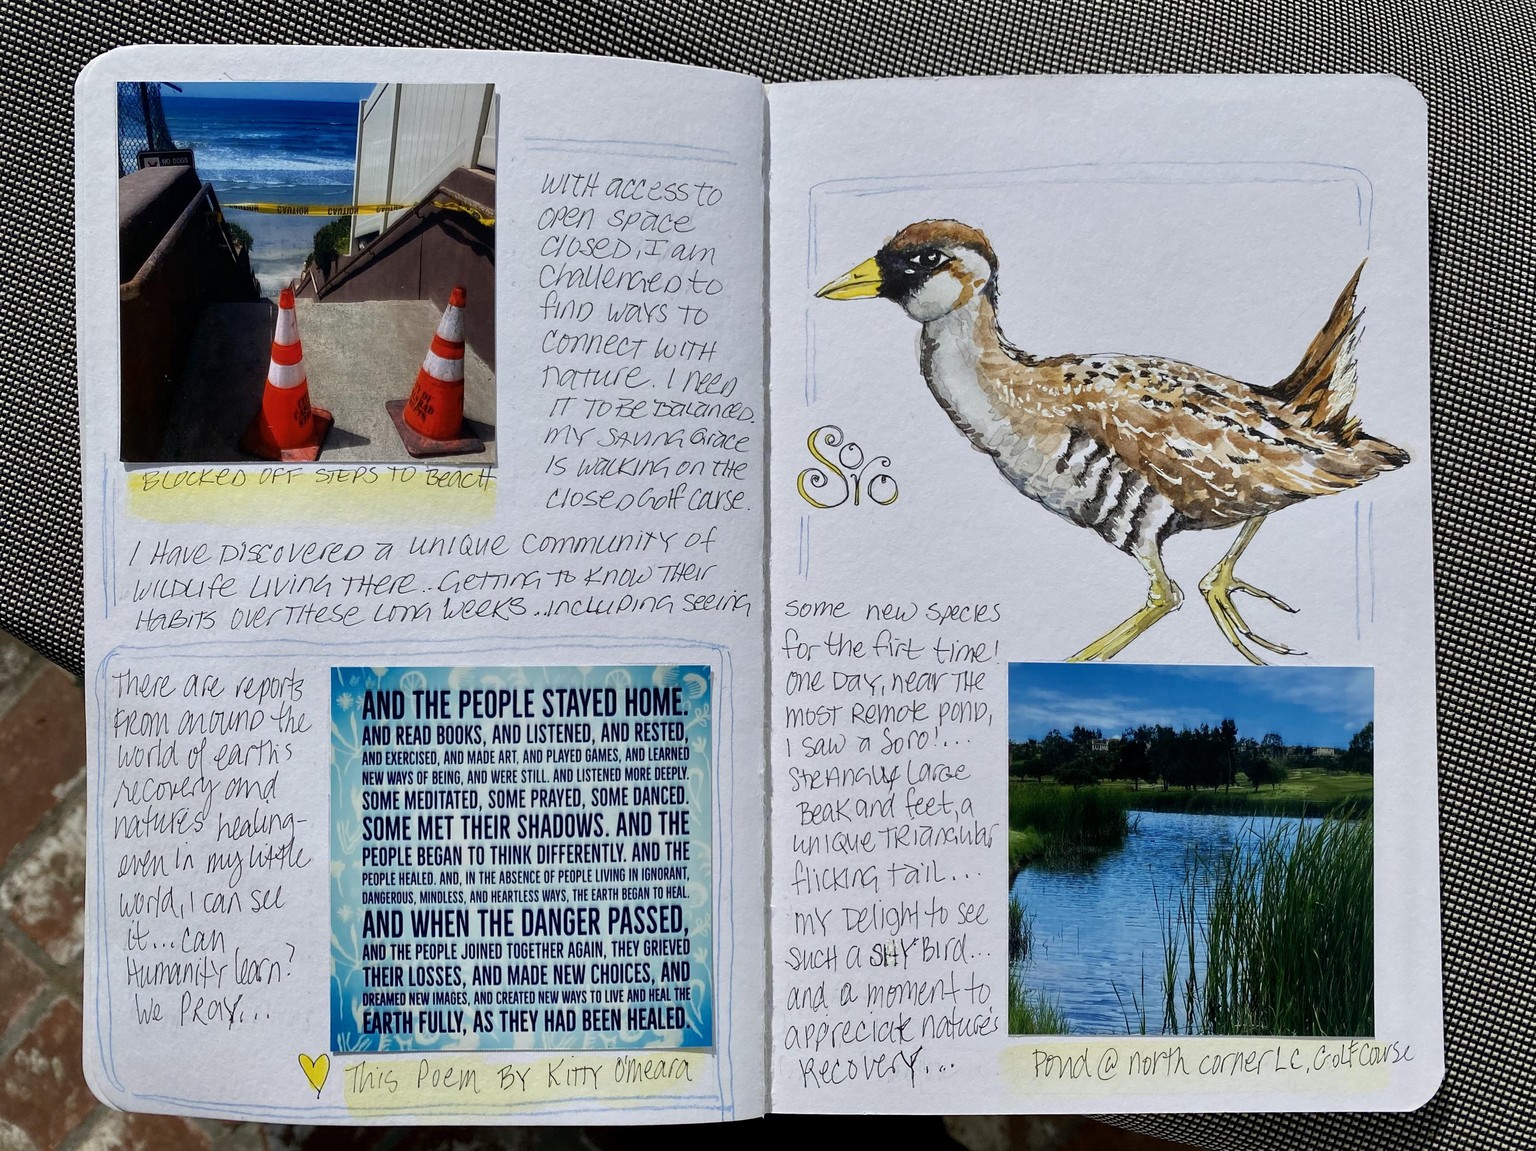 NO DOGS
CAUTION CAUTION CAUTION
BLOCKED OFF STEPS TO BEACH
WITH access to
open space
closed, I am
challenged to
find ways to
connect with
nature. I need
IT TO Be Balanced.
my saving Grace
is walking on the
closed Golf carse.
I Have Discovered a unique community of
wildlife living there.. Getting to know their
Habits over these long weeks...including seeing
There are reports
from around the
world of earth's
recovery and
nature's healing-
even in my little
world, I can see
it... can
Humanity learn?
We Pray...
AND THE PEOPLE STAYED HOME.
AND READ BOOKS, AND LISTENED, AND RESTED,
AND EXERCISED, AND MADE ART, AND PLAYED GAMES, AND LEARNED
NEW WAYS OF BEING, AND WERE STILL. AND LISTENED MORE DEEPLY.
SOME MEDITATED, SOME PRAYED, SOME DANCED.
SOME MET THEIR SHADOWS. AND THE
PEOPLE BEGAN TO THINK DIFFERENTLY. AND THE
PEOPLE HEALED. AND, IN THE ABSENCE OF PEOPLE LIVING IN IGNORANT,
DANGEROUS, MINDLESS, AND HEARTLESS WAYS, THE EARTH BEGAN TO HEAL.
AND WHEN THE DANGER PASSED,
AND THE PEOPLE JOINED TOGETHER AGAIN, THEY GRIEVED
THEIR LOSSES, AND MADE NEW CHOICES, AND
DREAMED NEW IMAGES, AND CREATED NEW WAYS TO LIVE AND HEAL THE
EARTH FULLY, AS THEY HAD BEEN HEALED.
This Poem By Kitty O'meara
Soro
some new species
for the firt time!
one Day, near the
most Remote pond,
I saw a Soro!....
Strangly Large
Beak and feet, a
unique Triangular
flicking tail...
my Delight to see
such a SHY Bird...
and a moment to
appreciate nature's
Recovery...
Pond @ north corner LC, Golf Course